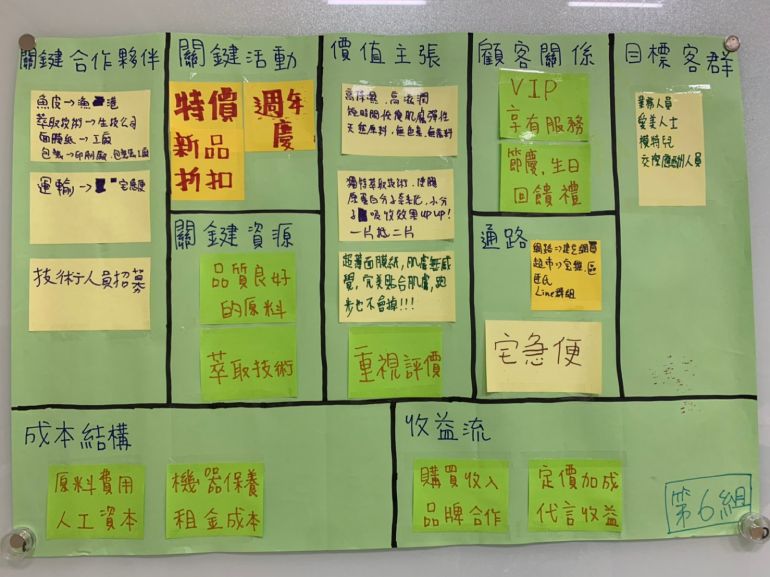 關鍵合作夥伴
魚皮→漁 港
萃取技術→生技公司
面膜紙→工廠
包裝→印刷廠、包裝工廠
運輸→ 宅急便
技術人員招募
關鍵活動
特價
週年
慶
新品
折扣
關鍵資源
品質良好
的原料
萃取技術
價值主張
高保濕、高滋潤
短時間恢復肌膚彈性
天然原料，無色素、無香料
獨特萃取技術，使膠
原蛋白分子
子 吸收效果UPUP!
一片抵二片
超薄面膜紙，肌膚無感
覺，完美貼合肌膚，跑
步也不會掉!!!
重視評價
顧客關係
VIP
享有服務
節慶、生日
回饋禮
通路
網路→建立網頁
超市→宝雅、屈
臣氏
Line群組
宅急便
目標客群
業務人員
愛美人士
模特兒
交際應酬人員
成本結構
原料費用
人工資本
機器保養
租金成本
收益流
購買收入
品牌合作
定價加成
代言收益
第6組